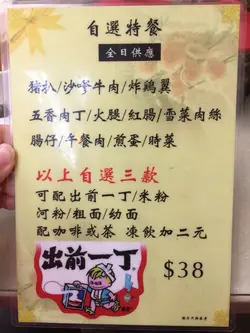 自選特餐
全日供應
豬扒/沙嗲牛肉/炸雞翼
五香肉丁/火腿/紅腸/雪菜肉絲
腸仔/午餐肉/煎蛋/時菜
以上自選三款
可配出前一丁/米粉
河粉/粗面/幼面
配咖啡或茶 凍飲加二元
出前一丁
$38